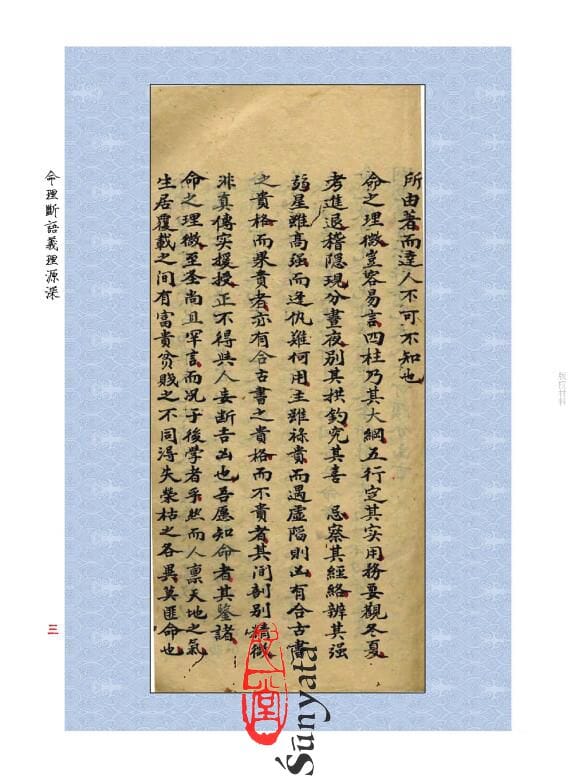 所由著而達人不可不知也
命之理微豈容易言四柱乃其大綱五行定其实用務要觀冬夏
考進退稽隱現分晝夜別其拱鈎究其喜 忌察其經絡辨其强
弱星雖高强而逢仇難何用主雖禄貴而遇虛陷則凶有合古書
之貴格而果貴者亦有合古書之貴格而不貴者其间剖别精微
非真傳实授正不得與人妄断吉凶也吾愿知命者其鑒諸
命之理微至圣尚且罕言而况于後学者乎然而人禀天地之氣
生居覆載之间有富貴贫賤之不同得失榮枯之各異莫匪命也
命理斷語義理源深
三
版权材料
Śūnyatā